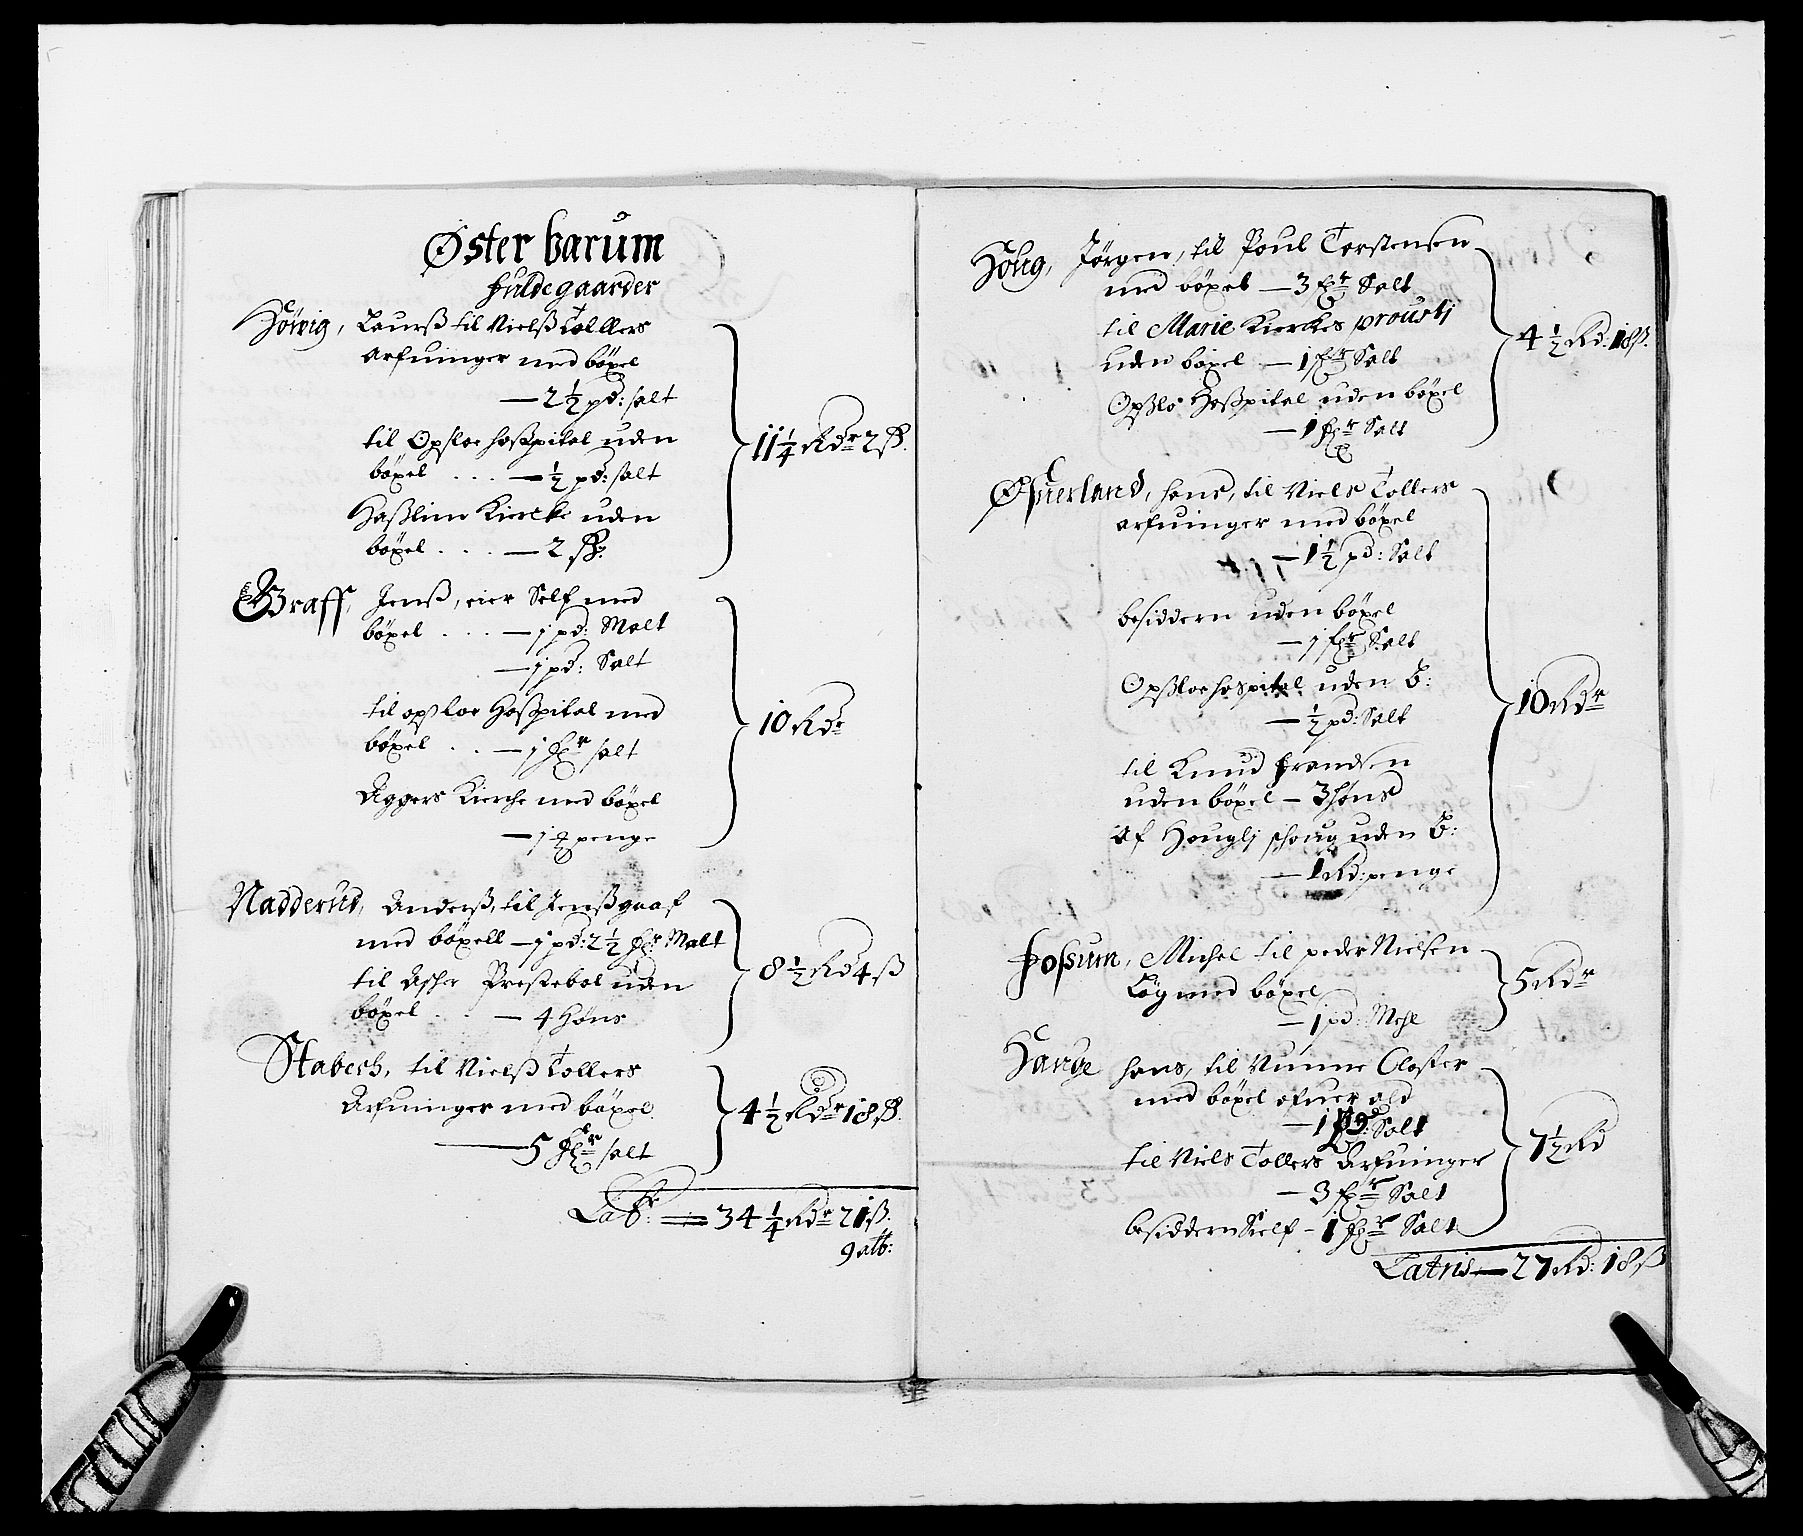 Øster barum
fuldegaarder
Höwig, Laurß til Nielß Tolllers
arfuinger med böxel
— 2 ½ pd: salt
til Opsloe hoßpital uden
böxel . . . — ½ pd: salt
Haßlum Kiercke uden
böxel . . . — 2 ß
11 ¼ Rdr 2 ß.
Graff, Jenß, eier Self med
böxel . . . — 1 pd: Malt
— 1 pd: Salt
til opsloe Hoßpital med
böxel . . — 1 fr salt
Aggers Kierche med böxel
— 1 penge
10 Rdr
Nadderud, Anderß, til Jenß graaf
med böxell — 1 pd: 2 ½ fr Malt
til Asker Prestebol uden
böxel . . — 4 Höns
8 ½ Rd 4 ß
Stabech, til Nielß Tollers
Arfuinger med böxel
— 5 fr salt
4 ½ Rdr 18 ß.
Latr: — 34 ¼ Rdr 21 ß.
9 alb:
Houg, Jørgen, til Poul Torstensen
med böxel — 3 fr Salt
til Marie Kierckesproustj
uden böxel — 1 fr Salt
Opßlo Hoßpital uden böxel
— 1 fr Salt
4 ½ Rd: 18 ß.
Øfuerland, hans, til Niels Tollers
arfuinger med böxel
— 1 ½ pd: Salt
besiddern uden böxel
— 1 fr Salt
Opßloe hospital uden B:
— ½ pd: Salt
til Knud frandsen
uden böxel — 3 höns
Af Houglj schoug uden B:
— 1 Rd: penge
10 Rdr
fossum, Michel til peder Nielsen
Løg med böxel
— 1 pd: Mehl
5 Rdr
Hauge hans, til Nunne Closter
med böxel ofuer ald
— 1 pd: Salt
til Niels Tollers Arfuinger
— 3 fr Salt
besiddern Sielf — 1 fr Salt
7 ½ Rd
Latris — 27 Rd: 18 ß